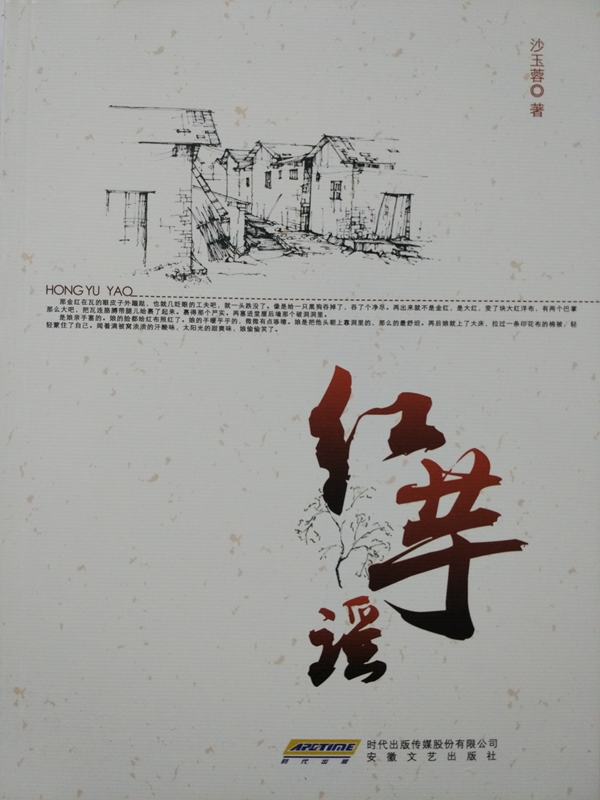 沙玉蓉◎著
HONG YU YAO
那金红在瓦的眼皮子外蹦跶，也就几眨眼的工夫吧，就一头跌没了。像是给一只黑狗吞掉了，吞了个净尽。再出来就不是金红，是大红，变了块大红洋布，有两个巴掌
那么大吧，把瓦连胳膊带腿儿给裹了起来。裹得那个严实。再塞进堂屋后墙那个破洞洞里。
是娘亲手塞的。娘的脸都给红布照红了。娘的手暖乎乎的，微微有点哆嗦。娘是把他头朝上靠洞里的，那么的最舒坦。再后娘就上了大床，拉过一条印花布的棉被，轻
轻蒙住了自己。闻着满被窝淡淡的汗酸味，太阳光的甜爽味，娘偷偷笑了。
红芋谣
APGTIME
时代出版
时代出版传媒股份有限公司
安徽文艺出版社